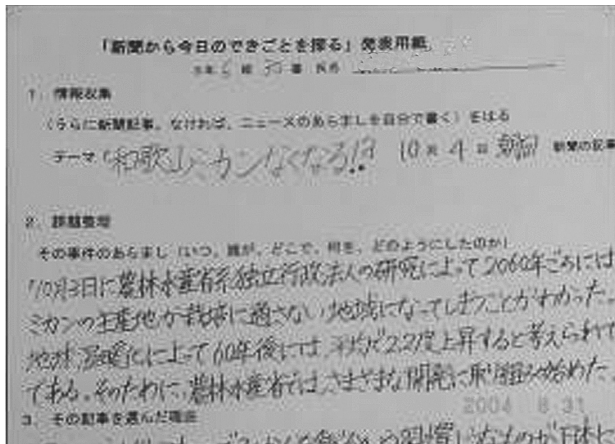 「新聞から今日のできごとを探る」発表用紙
3年 組 番 氏名
1. 情報収集
(うらに新聞記事、なければ、ニュースのあらましを自分で書く)をはる
テーマ「和歌山ミカンなくなる!?」 10月4日 朝日 新聞の記事
2. 課題整理
その事件のあらまし(いつ、誰が、どこで、何を、どのようにしたのか)
10月3日に農林水産省系独立行政法人の研究によって2060年ごろには
ミカンの生産地が栽培に適さない地域になってしまうことがわかった。
地球温暖化によって60年後には、平均で2.2度上昇すると考えられて
である。そのために、農林水産省では、さまざまな開発に取り組み始めた。
2004 8 31
3. その記事を選んだ理由